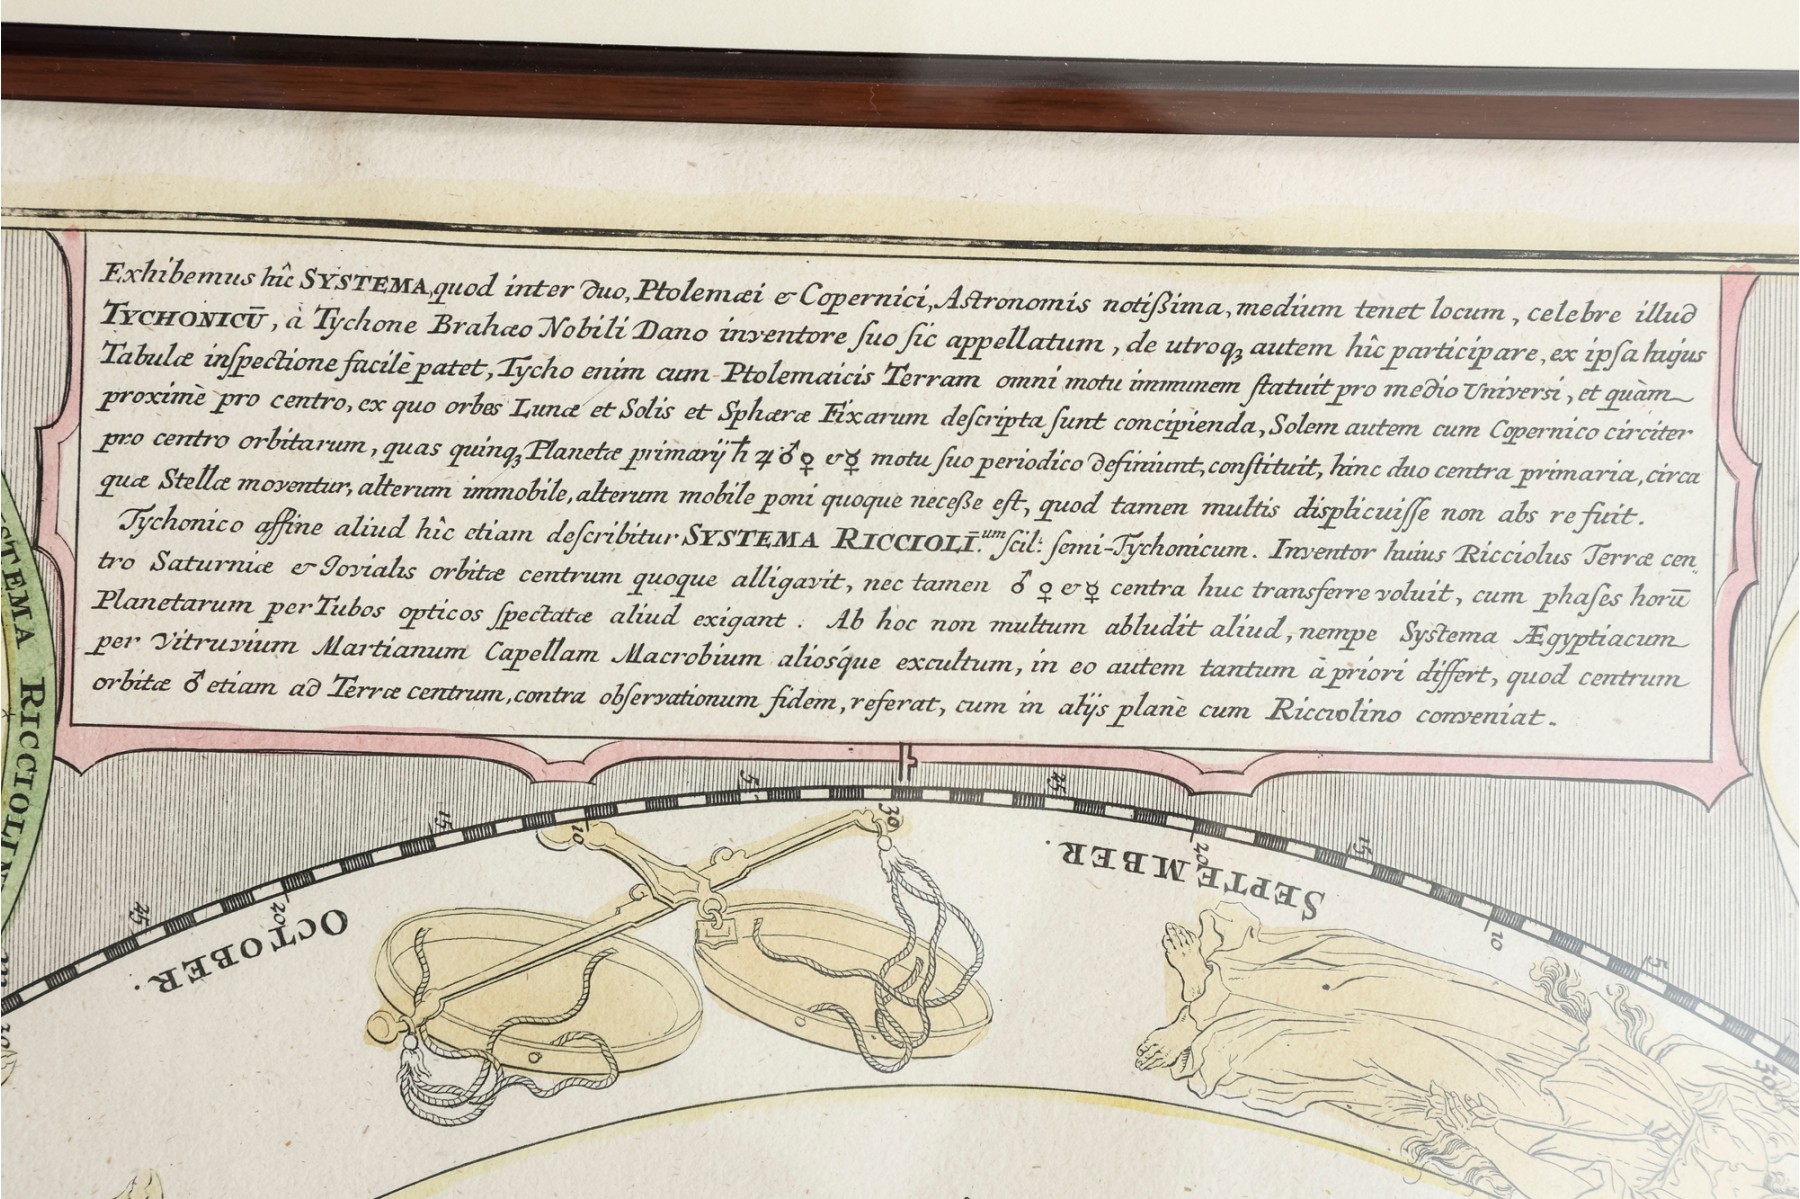 Exhibemus hîc SYSTEMA, quod inter duo, Ptolemæi & Copernici, Astronomis notißima, medium tenet locum, celebre illud
TYCHONICŪ, à Tychone Brahæo Nobili Dano inventore ſuo ſic appellatum, de utroqꝫ autem hîc participare, ex ipſa hujus
Tabulæ inſpectione facilè patet, Tycho enim cum Ptolemaicis Terram omni motu immunem ſtatuit pro medio Universi, et quàm
proximè pro centro, ex quo orbes Lunæ et Solis et Sphæræ Fixarum deſcripta ſunt concipienda, Solem autem cum Copernico circiter
pro centro orbitarum, quas quinqꝫ Planetæ primarij ♄ ♃ ♂ ♀ & ☿ motu ſuo periodico definiunt, conſtituit, hinc duo centra primaria, circa
quæ Stellæ moventur, alterum immobile, alterum mobile poni quoque neceße eſt, quod tamen multis displicuiſſe non abs re fuit.
Tychonico affine aliud hîc etiam deſcribitur SYSTEMA RICCIOLĪ.um ſcil: ſemi-Tychonicum. Inventor huius Ricciolus Terræ cen
tro Saturniæ & Jovialis orbitæ centrum quoque alligavit, nec tamen ♂ ♀ & ☿ centra huc transferre voluit, cum phaſes horū
Planetarum per Tubos opticos ſpectatæ aliud exigant. Ab hoc non multum abludit aliud, nempe Systema Ægyptiacum
per Vitruvium Martianum Capellam Macrobium aliosque excultum, in eo autem tantum à priori differt, quod centrum
orbitæ ♂ etiam ad Terræ centrum, contra obſervationum fidem, referat, cum in alijs planè cum Ricciolino conveniat.
STEMA RICCIOLIN
25
20
15
10
5
30
25
20
15
10
5
30
OCTOBER.
SEPTEMBER.